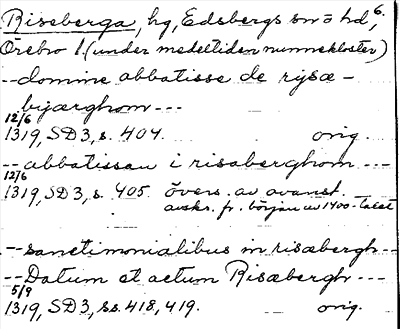 Riseberga, hg, Edsbergs sn o hd, 6.
Örebro l. (under medeltiden nunnekloster)
-- domine abbatisse de rysæ-
byærghom ---
12/6
1319, SD3, s. 404. orig.
-- abbatissan i risaberghom ---
12/6
1319, SD3, s. 405. övers. av ovanst.
avskr. fr. början av 1400-talet
-- sanctimonialibus in risæbergh --
-- Datum et actum Risæbergh ---
5/9
1319, SD3, ss. 418, 419. orig.